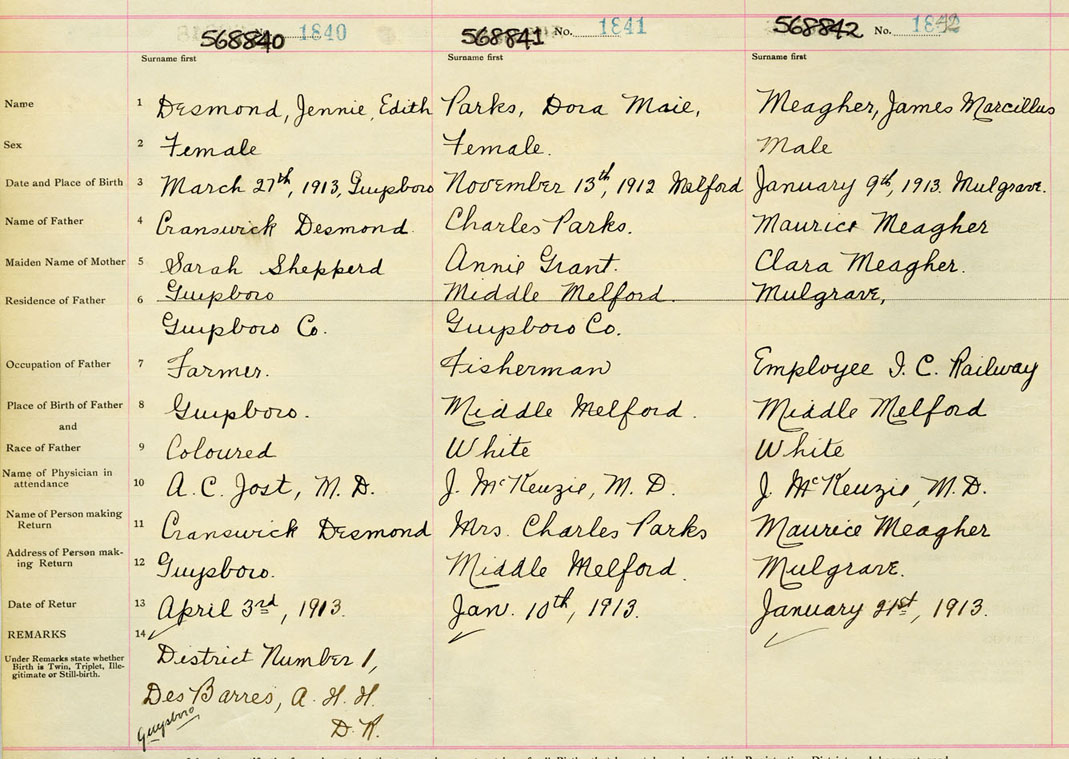 568840 1840 568841 No. 1841 568842 No. 1842
Surname first Surname first Surname first
Name 1 Desmond, Jennie, Edith Parks, Dora Maie, Meagher, James Marcillus
Sex 2 Female Female. Male
Date and Place of Birth 3 March 27th, 1913, Guysboro November 13th, 1912 Melford January 9th, 1913. Mulgrave.
Name of Father 4 Cranswick Desmond. Charles Parks. Maurice Meagher
Maiden Name of Mother 5 Sarah Shepperd Annie Grant. Clara Meagher.
Residence of Father 6 Guysboro Middle Melford. Mulgrave,
Guysboro Co. Guysboro Co.
Occupation of Father 7 Farmer. Fisherman Employee I. C. Railway
Place of Birth of Father 8 Guysboro. Middle Melford. Middle Melford
and
Race of Father 9 Coloured White White
Name of Physician in
attendance 10 A. C. Jost, M. D. J. McKenzie, M. D. J. McKenzie, M. D.
Name of Person making
Return 11 Cranswick Desmond Mrs. Charles Parks Maurice Meagher
Address of Person mak-
ing Return 12 Guysboro. Middle Melford. Mulgrave.
Date of Retur 13 April 3rd, 1913. Jan. 10th, 1913. January 21st, 1913.
REMARKS 14
Under Remarks state whether
Birth is Twin, Triplet, Ille-
gitimate or Still-birth.
District Number 1,
Des Barres, A. H. H.
Guysboro D. R.